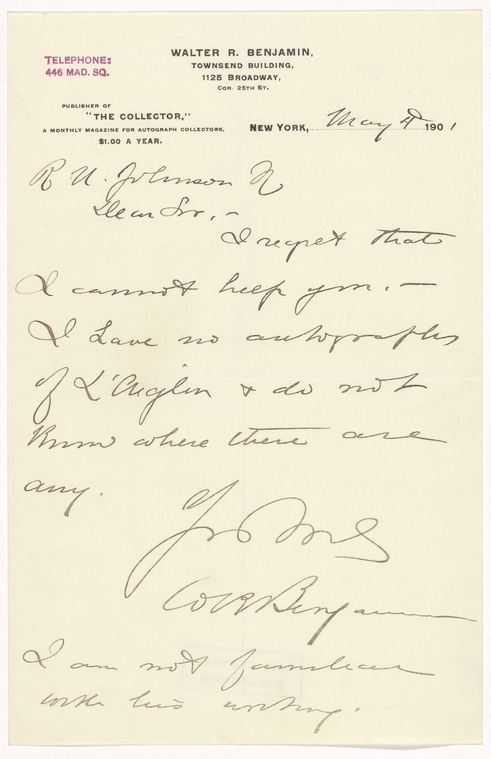 TELEPHONE:
446 MAD. SQ.
WALTER R. BENJAMIN,
TOWNSEND BUILDING,
1125 BROADWAY,
COR. 25TH ST.
PUBLISHER OF
"THE COLLECTOR,"
A MONTHLY MAGAZINE FOR AUTOGRAPH COLLECTORS.
$1.00 A YEAR.
NEW YORK, May 4 1901
R U. Johnson
Dear Sir, -
I regret that
I cannot help you. -
I have no autographs
of L'Aiglon & do not
know where there are
any.
Yrs truly
W R Benjamin
I am not familiar
with his writing.